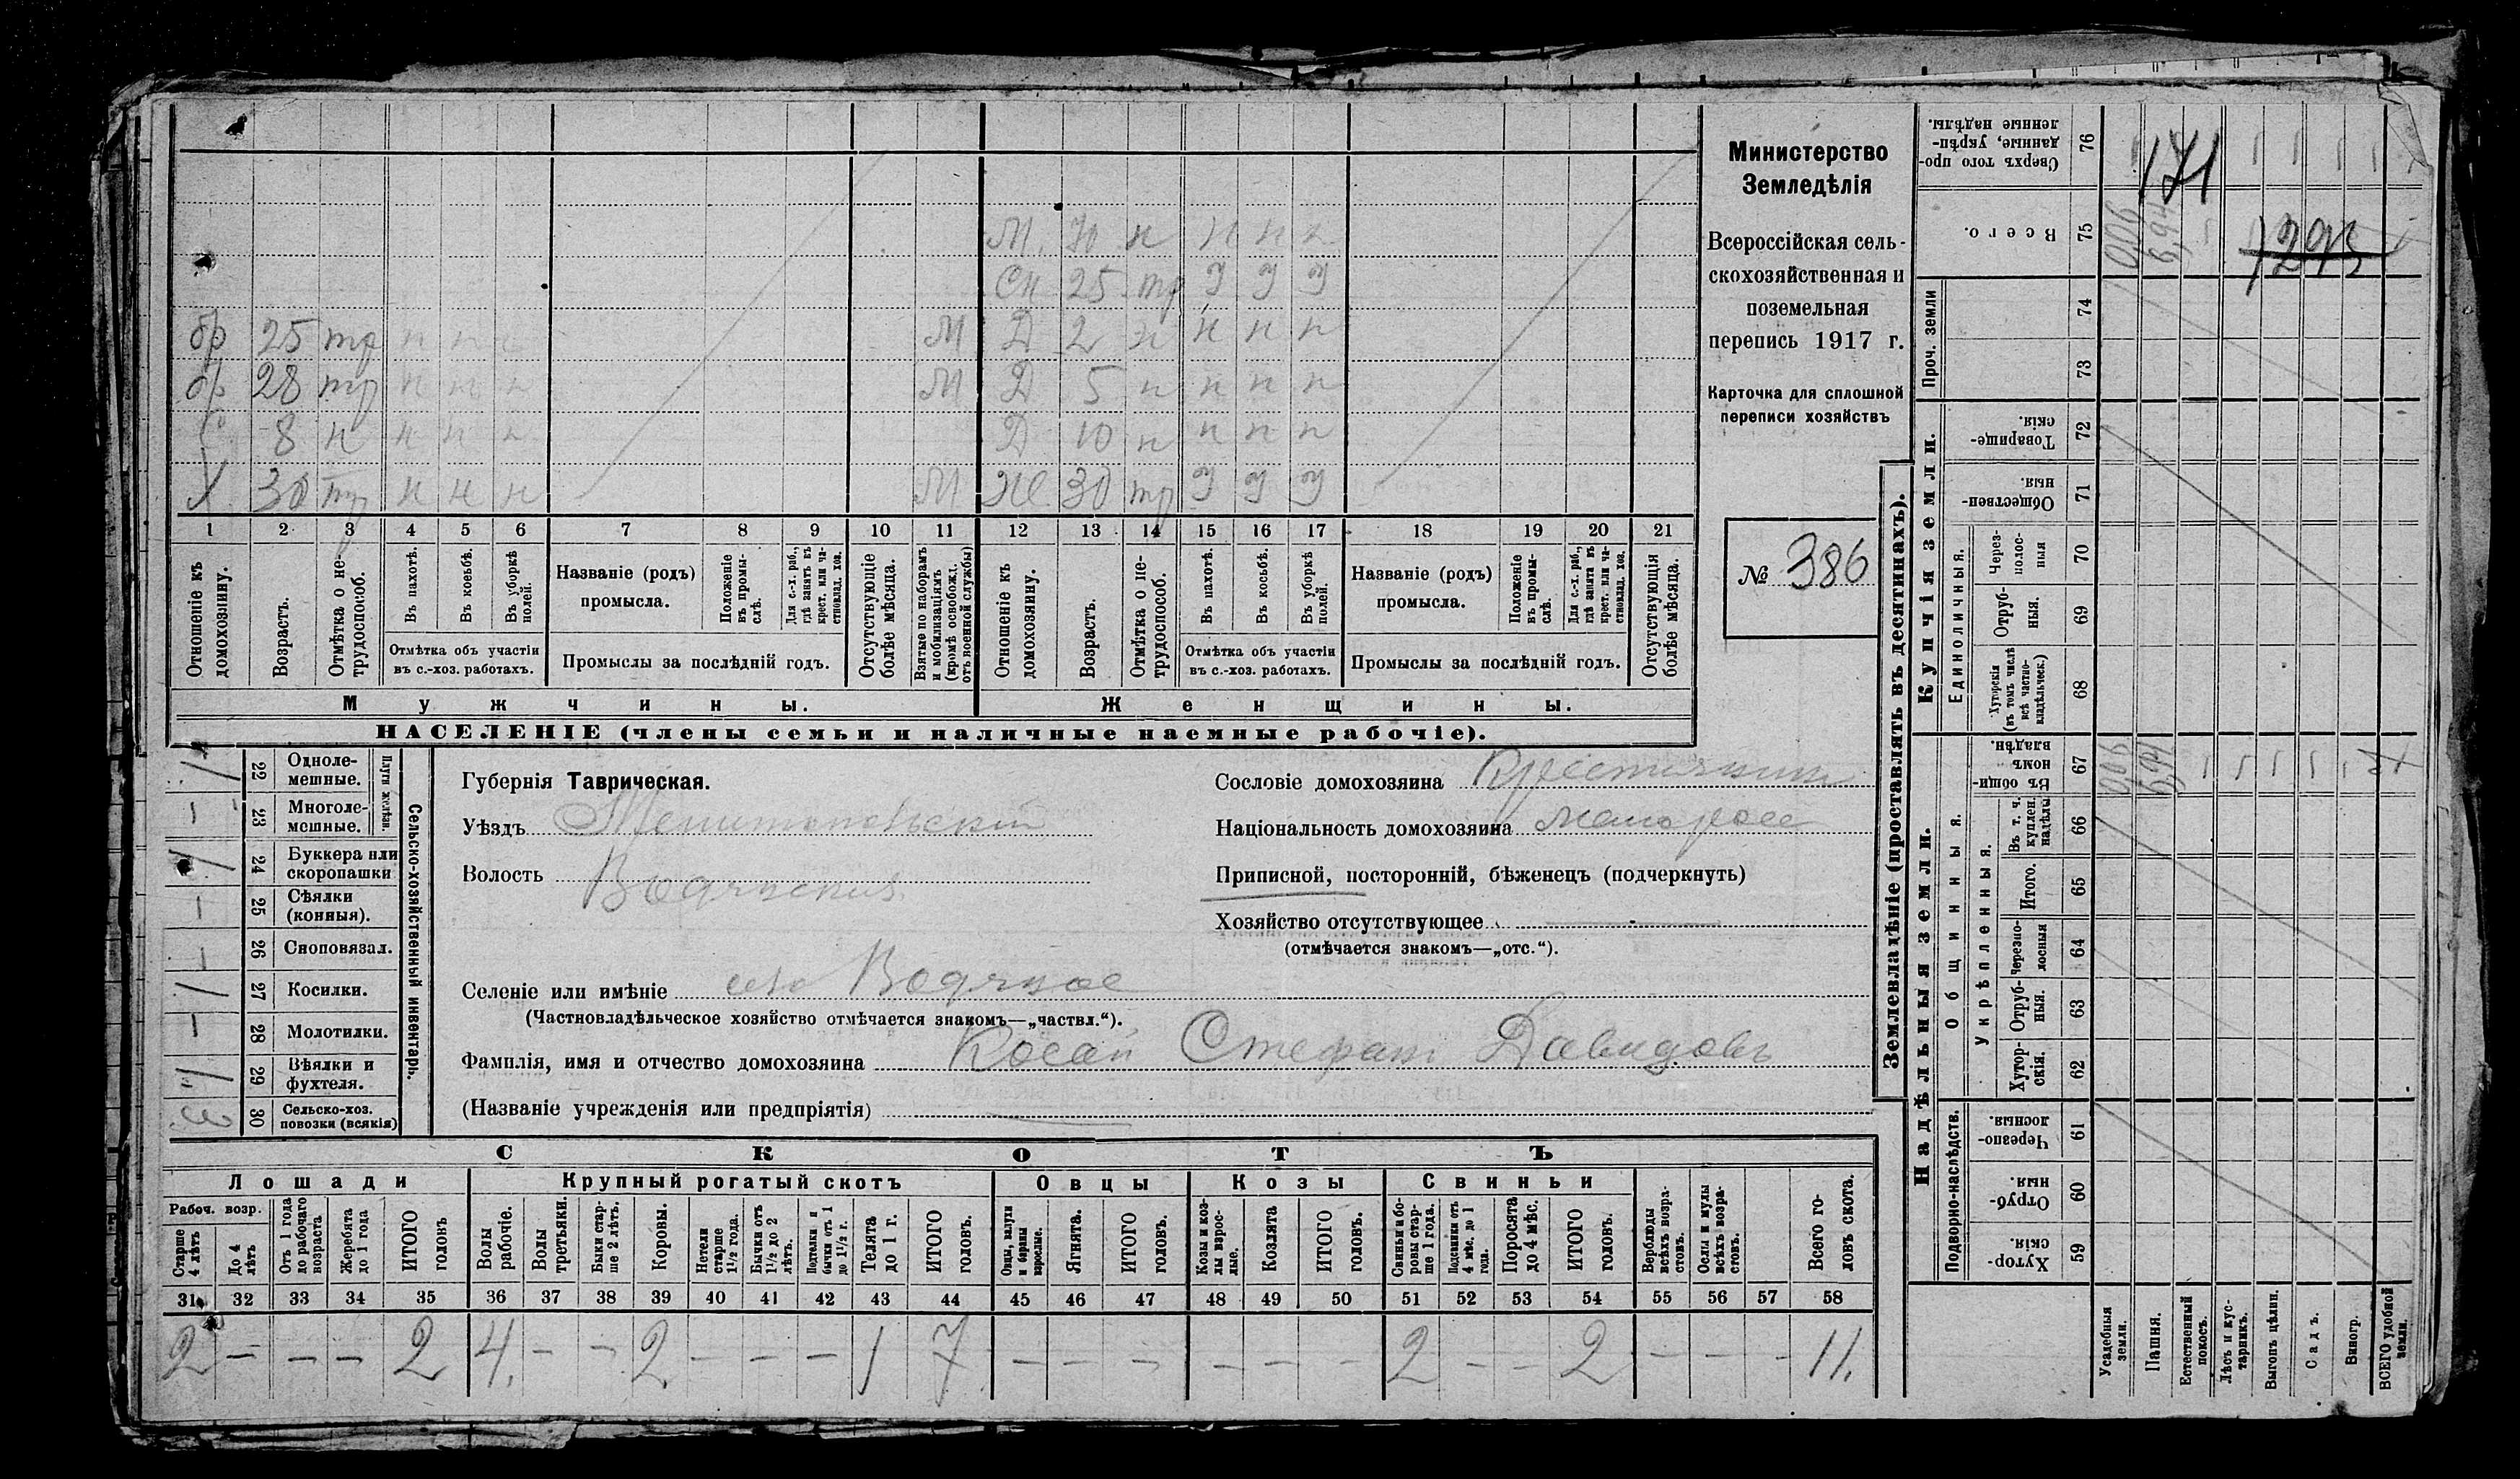 Министерство
Земледѣлія
Всероссійская сель-
скохозяйственная и
поземельная
перепись 1917 г.
Карточка для сплошной
переписи хозяйствъ
№ 386
М. 70 н н н н
Сн 25 тр У У У
бр 25 тр н н н М Д 2 н н н н
бр 28 тр н н н М Д 5 н н н н
С 8 н н н н Д 10 н н н н
Х 30 тр н н н М Ж 30 тр У У У
1 2 3 4 5 6 7 8 9 10 11 12 13 14 15 16 17 18 19 20 21
Отношеніе къ домохозяину.
Возрастъ.
Отмѣтка о не-трудоспособ.
Въ пахотѣ.
Въ косьбѣ.
Въ уборкѣ полей.
Отмѣтка объ участіи въ с.-хоз. работахъ.
Названіе (родъ) промысла.
Положеніе въ промы-слѣ.
Для с.-х. раб., гдѣ занятъ въ крест. или ча-стновлад. хоз.
Промыслы за послѣдній годъ.
Отсутствующіе болѣе мѣсяца.
Взятые по наборамъ и мобилизаціямъ (кромѣ освобожд. отъ военной службы)
Отношеніе къ домохозяину.
Возрастъ.
Отмѣтка о не-трудоспособ.
Въ пахотѣ.
Въ косьбѣ.
Въ уборкѣ полей.
Отмѣтка объ участіи въ с.-хоз. работахъ.
Названіе (родъ) промысла.
Положеніе въ промы-слѣ.
Для с.-х. раб., гдѣ занята въ крест. или ча-стновлад. хоз.
Промыслы за послѣдній годъ.
Отсутствующія болѣе мѣсяца.
Мужчины. Женщины.
НАСЕЛЕНІЕ (члены семьи и наличные наемные рабочіе).
Сельско-хозяйственный инвентарь.
Плуги желѣзн.
22 Одноле-мешные. 1
23 Многоле-мешные. –
24 Буккера или скоропашки 1
25 Сѣялки (конныя). –
26 Сноповязал. –
27 Косилки. 1
28 Молотилки. –
29 Вѣялки и фухтеля. 1
30 Сельско-хоз. повозки (всякія) 3
Губернія Таврическая.
Уѣздъ Мелитопольскій
Волость Водянская
Сословіе домохозяина Крестьянинъ
Національность домохозяина малоросс
Приписной, посторонній, бѣженецъ (подчеркнуть)
Хозяйство отсутствующее
(отмѣчается знакомъ—„отс.“).
Селеніе или имѣніе село Водяное
(Частновладѣльческое хозяйство отмѣчается знакомъ—„частвл.“).
Фамилія, имя и отчество домохозяина Косай Стефанъ Давидовъ
(Названіе учрежденія или предпріятія)
СКОТЪ
Лошади Крупный рогатый скотъ Овцы Козы Свиньи
Рабоч. возр.
Старше 4 лѣтъ
До 4 лѣтъ
Отъ 1 года до рабочаго возраста
Жеребята до 1 года
ИТОГО головъ
Волы рабочіе.
Волы третьяки.
Быки стар-ше 2 лѣтъ.
Коровы.
Нетели старше 1½ года.
Бычки отъ 1½ до 2 лѣтъ.
Подтелки и бычки отъ 1 до 1½ г.
Телята до 1 г.
ИТОГО головъ.
Овцы, валухи и бараны взрослые.
Ягнята.
ИТОГО головъ.
Козы и коз-лы взрос-лые.
Козлята
ИТОГО головъ.
Свиньи и бо-ровы стар-ше 1 года.
Подсвинки отъ 4 мѣс. до 1 года.
Поросята до 4 мѣс.
ИТОГО головъ.
Верблюды всѣхъ возра-стовъ.
Ослы и мулы всѣхъ возра-стовъ.
Всего го-ловъ скота.
31 32 33 34 35 36 37 38 39 40 41 42 43 44 45 46 47 48 49 50 51 52 53 54 55 56 57 58
2 – – – 2 4 – – 2 – – – 1 7 – – – – – – 2 – – 2 – – – 11.
Землевладѣніе (проставлять въ десятинахъ).
Надѣльныя земли. Купчія земли. Проч. земли
Подворно-наслѣдств. Общинныя. Укрѣпленныя. Единоличныя.
59 Хутор-скія.
60 Отруб-ныя.
61 Черезпо-лосныя.
62 Хутор-скія.
63 Отруб-ныя.
64 Черезпо-лосныя
65 Итого.
66 Въ т. ч. куплен. надѣлы
67 Въ общи-нномъ владѣн.
68 Хуторскія (въ томъ числѣ всѣ частно-владѣльческ.)
69 Отруб-ныя.
70 Через-полос-ныя
71 Обществен-ныя.
72 Товарище-скія.
73
74
75 Всего.
76 Сверхъ того про-данные, укрѣп-ленные надѣлы.
171
7293
Усадебныя земли.
Пашня.
Естественный покосъ.
Лѣсъ и кус-тарникъ.
Выгонъ цѣлин.
Садъ.
Виногр.
ВСЕГО удобной земли.